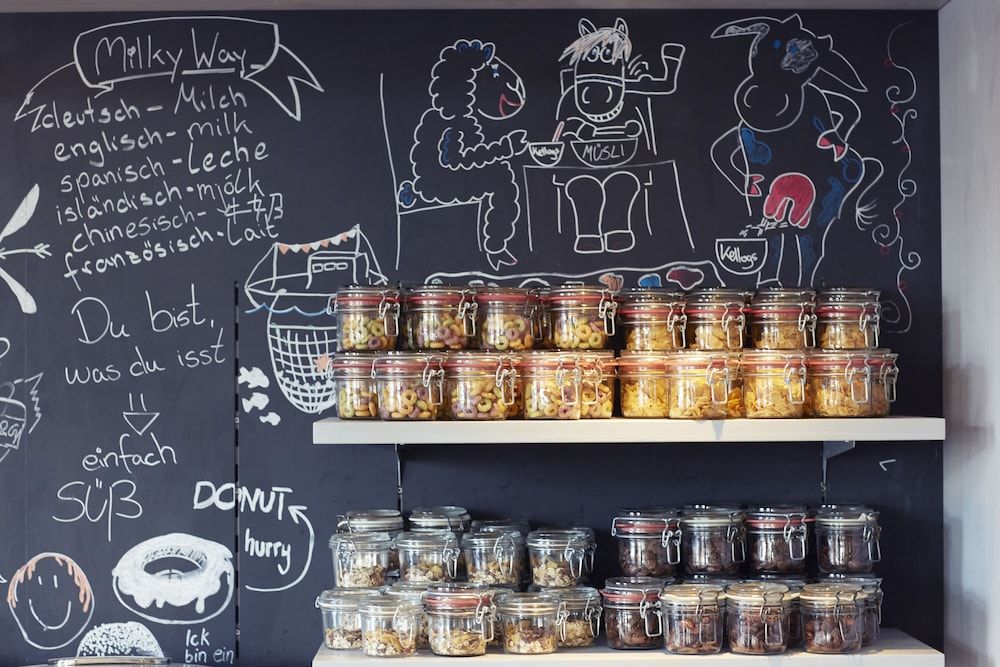 Milky Way
deutsch - Milch
englisch - milk
spanisch - Leche
isländisch - mjólk
chinesisch - 牛奶
französisch - Lait
Du bist,
was du isst
einfach
SÜß
DONUT
hurry
Ick
bin ein
Kellogs
MÜSLI
Kellogs